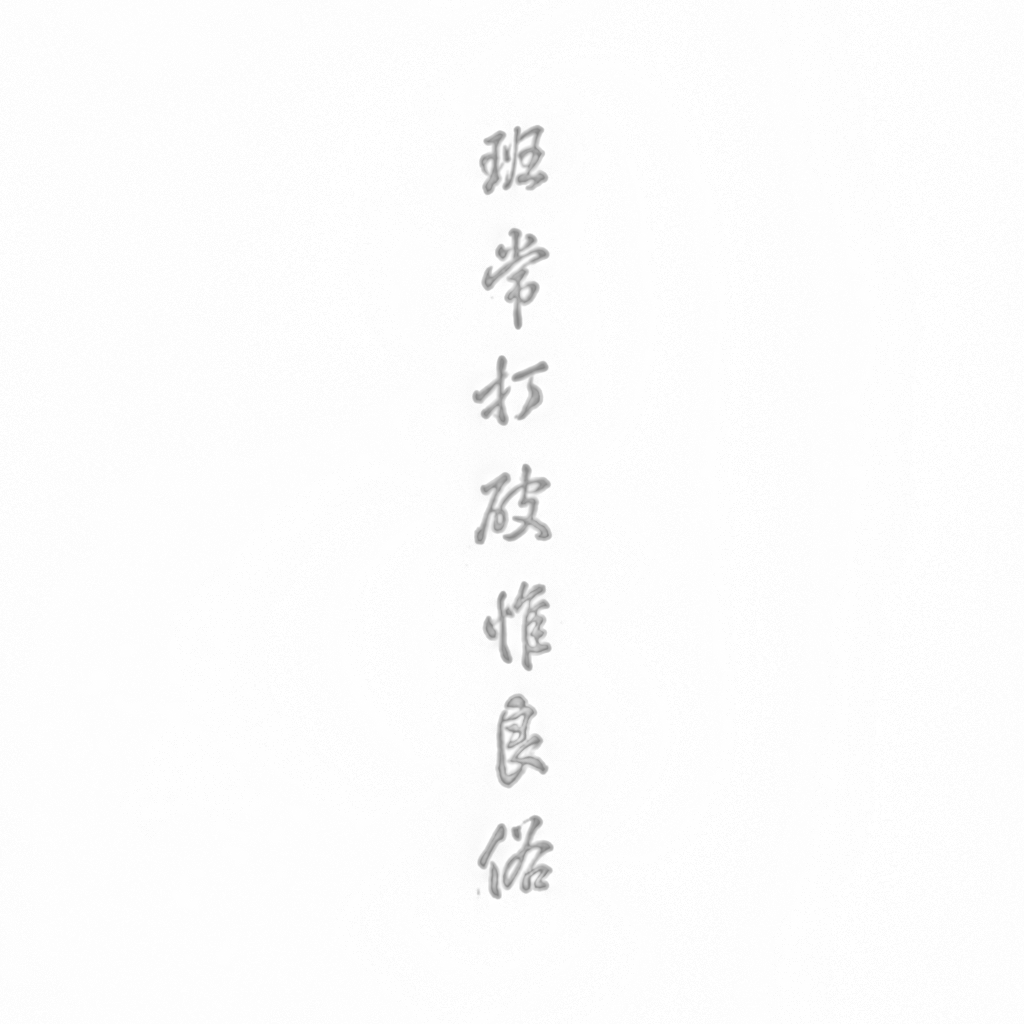 班常打破惟良俗